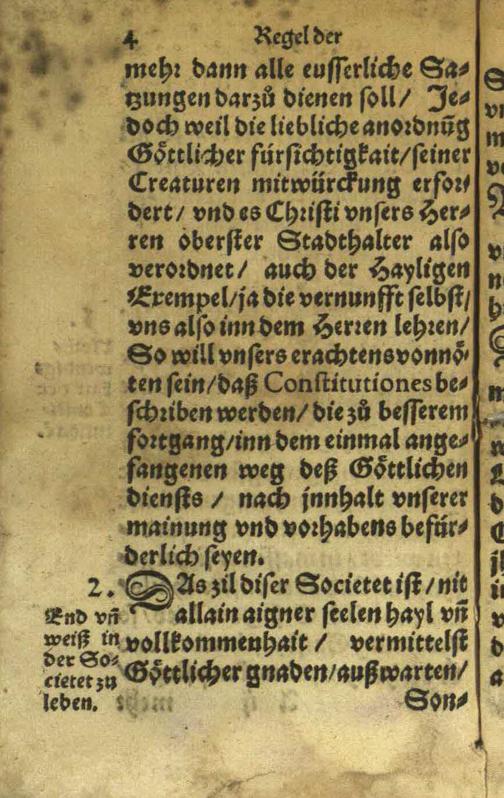 4 Regel der
mehr dann alle eusserliche Sa⸗
tzungen darzů dienen soll/ Je⸗
doch weil die liebliche anordnũg
Göttlicher fürsichtigkait/seiner
Creaturen mitwürckung erfor⸗
dert/ vnd es Christi vnsers Her⸗
ren oberster Stadthalter also
verordnet/ auch der Hayligen
Exempel/ja die vernunfft selbst/
vns also inn dem Herren lehren/
So will vnsers erachtens vonnö⸗
ten sein/daß Constitutiones be⸗
schriben werden/ die zů besserem
fortgang/inn dem einmal ange⸗
fangenen weg deß Göttlichen
diensts / nach jnnhalt vnserer
mainung vnd vorhabens befür⸗
derlich seyen.
2. DAs zil diser Societet ist/nit
allain aigner seelen hayl vñ
vollkommenhait / vermittelst
Göttlicher gnaden/außwarten/
Son⸗
End vñ
weiß in
der So⸗
cietet zu
leben.